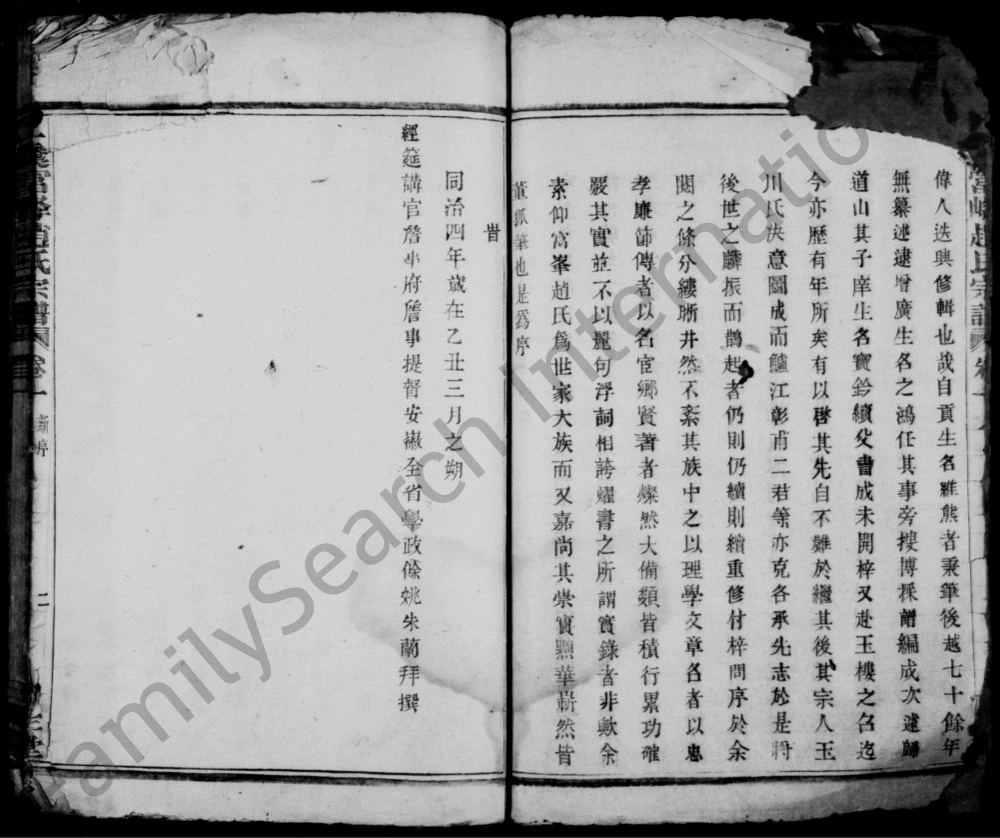 偉人迭興修輯也哉自貢生名維熊者秉筆後越七十餘年
無纂述逮增廣生名之鴻任其事旁搜博採譜編成次遽歸
道山其子庠生名寶鈐續父書成未開梓又赴玉樓之召迄
今亦歷有年所矣有以啓其先自不難於繼其後其宗人玉
川氏决意圖成而鱸江彰甫二君等亦克各承先志於是將
後世之麟振而鵲起者仍則仍續則續重修付梓問序於余
閱之條分縷晰井然不紊其族中之以理學文章名者以忠
孝廉節傳者以名宦鄉賢著者燦然大備類皆積行累功確
嚴其實並不以麗句浮詞相誇耀書之所謂實錄者非歟余
素仰富峯趙氏爲世家大族而又嘉尚其崇實黜華嶄然皆
董狐筆也是爲序
旹
同治四年歲在乙丑三月之朔
經筵講官詹事府詹事提督安徽全省學政餘姚朱蘭拜撰
富峰趙氏宗譜
卷一
新序
二
FamilySearch International